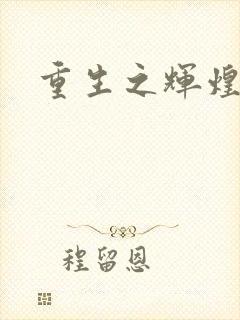 重生之辉煌
程留恩